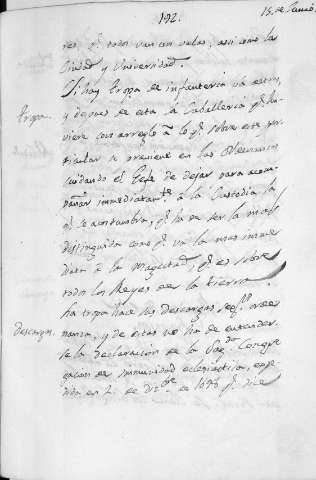 192.
15. de Junio
res, q.e todos van con velas, asi como la
Ciudad y Universidad.
Si hay tropa de infanteria va esta,
Tropa.
y despues de esta la Caballeria q.e hu-
viere con arreglo à lo q.e sobre este par-
ticular se previene en las Ordenanzas
cuidando el Gefe de dejar para acom-
pañar immediatam.te à la Custodia la
q.e se acostumbra, q.e ha de ser la mas
distinguida como q.e va la mas imme-
diata à la Magestad, q.e es sobre
todos los Reyes de la tierra.
La tropa hace las descargas seg.n orde-
Descargas.
nanza, y de estas no ha de entender-
se la declaracion de la Sag.da Congre-
gacion de immunidad eclesiastica, expe-
dida en de Dic.bre de q.e dice